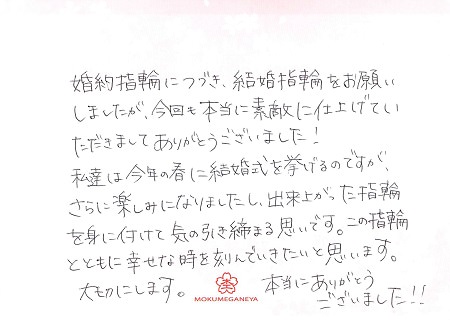 婚約指輪につづき、結婚指輪をお願い
しましたが、今回も本当に素敵に仕上げてい
ただきましてありがとうございました！
私達は今年の春に結婚式を挙げるのですが、
さらに楽しみになりましたし、出来上がった指輪
を身に付けて気の引き締まる思いです。この指輪
とともに幸せな時を刻んでいきたいと思います。
大切にします。 本当にありがとう
ございました!!
MOKUMEGANEYA